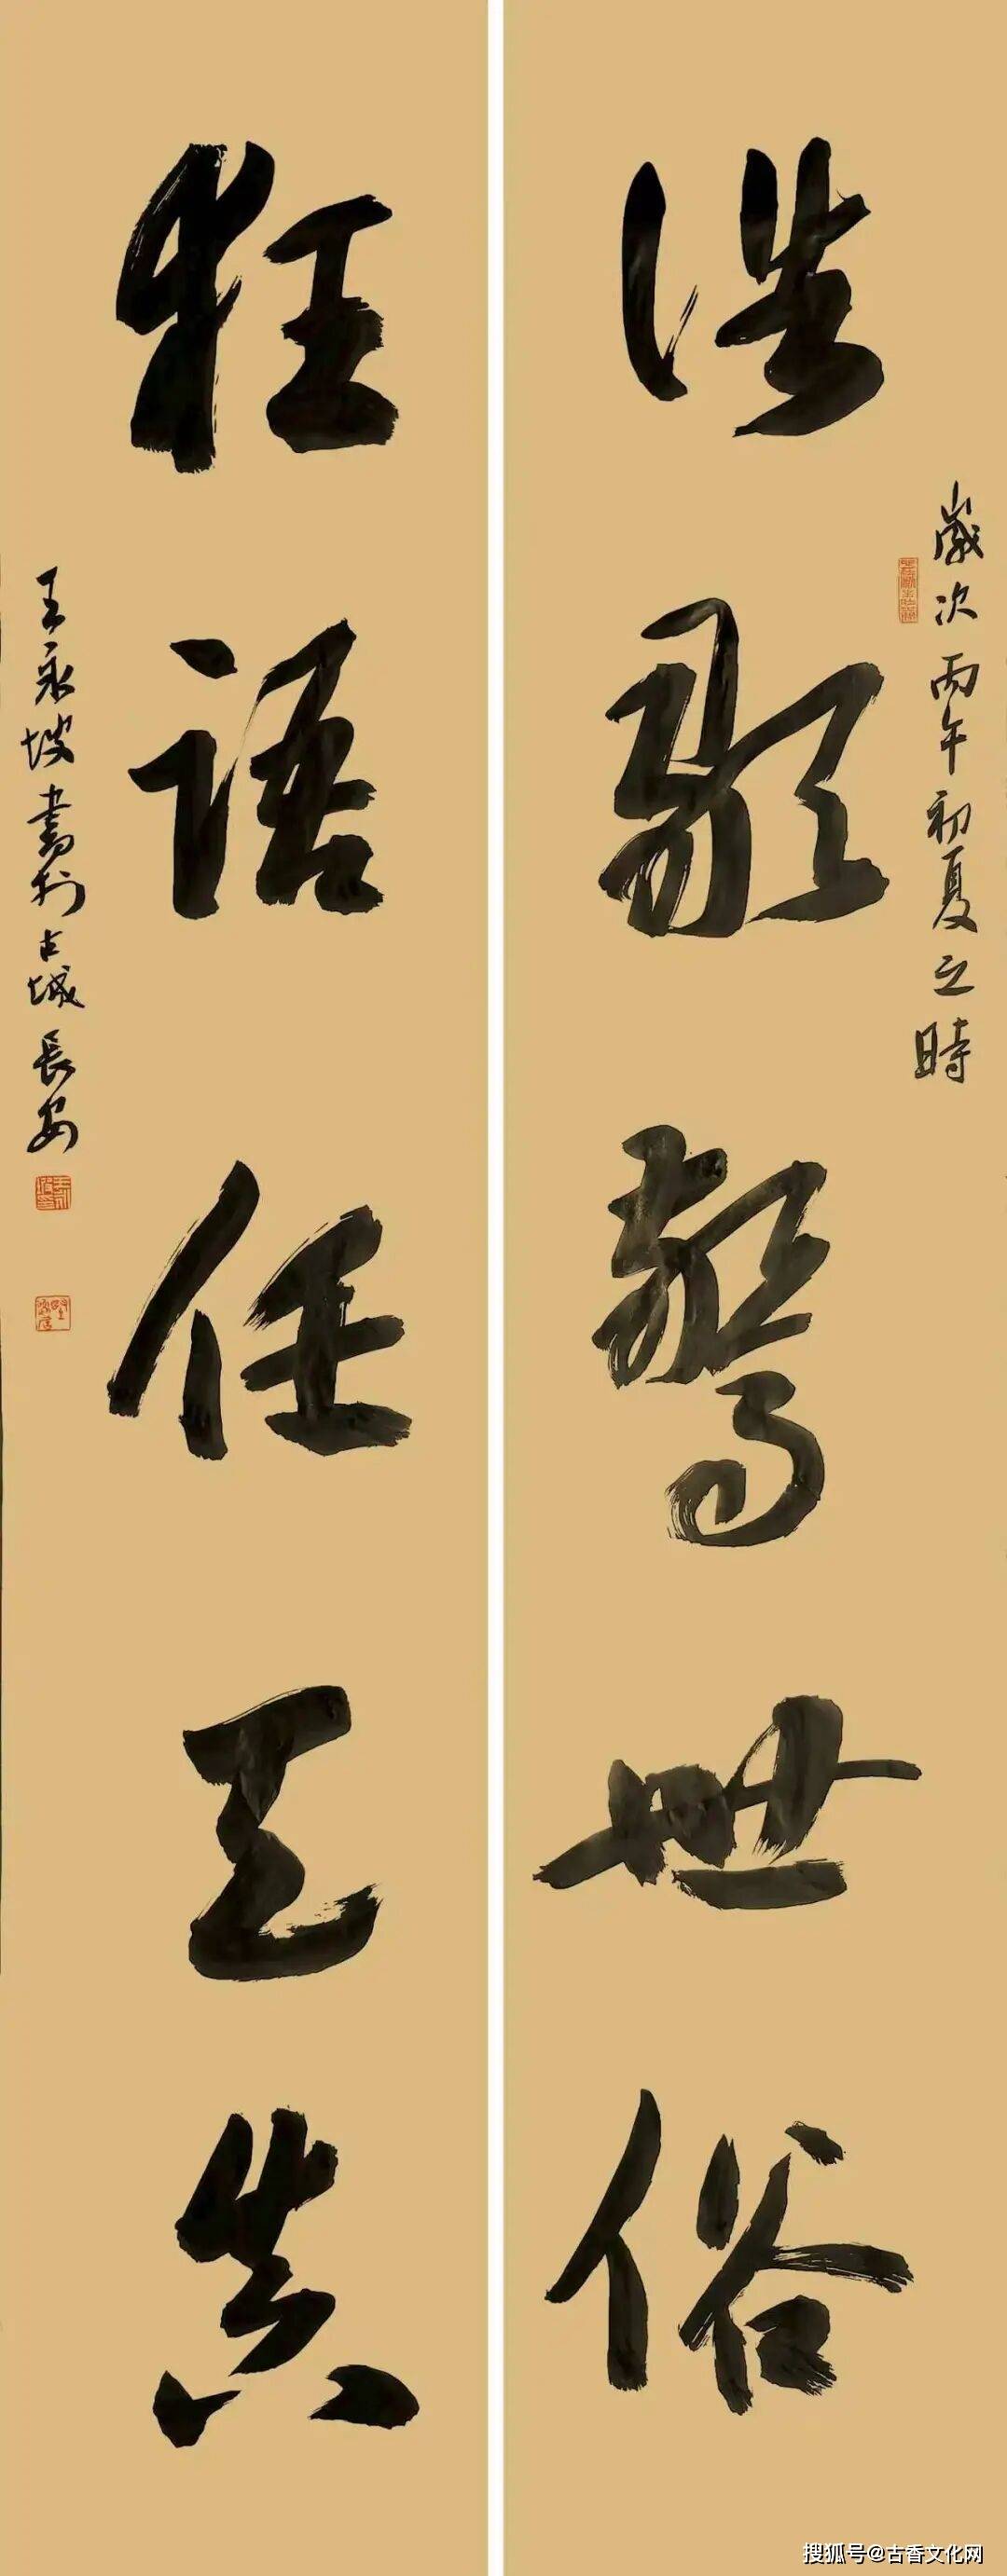 浩歌驚世俗
歲次丙午初夏之時
狂語任天真
王永坡書於古城長安
搜狐号@古香文化网